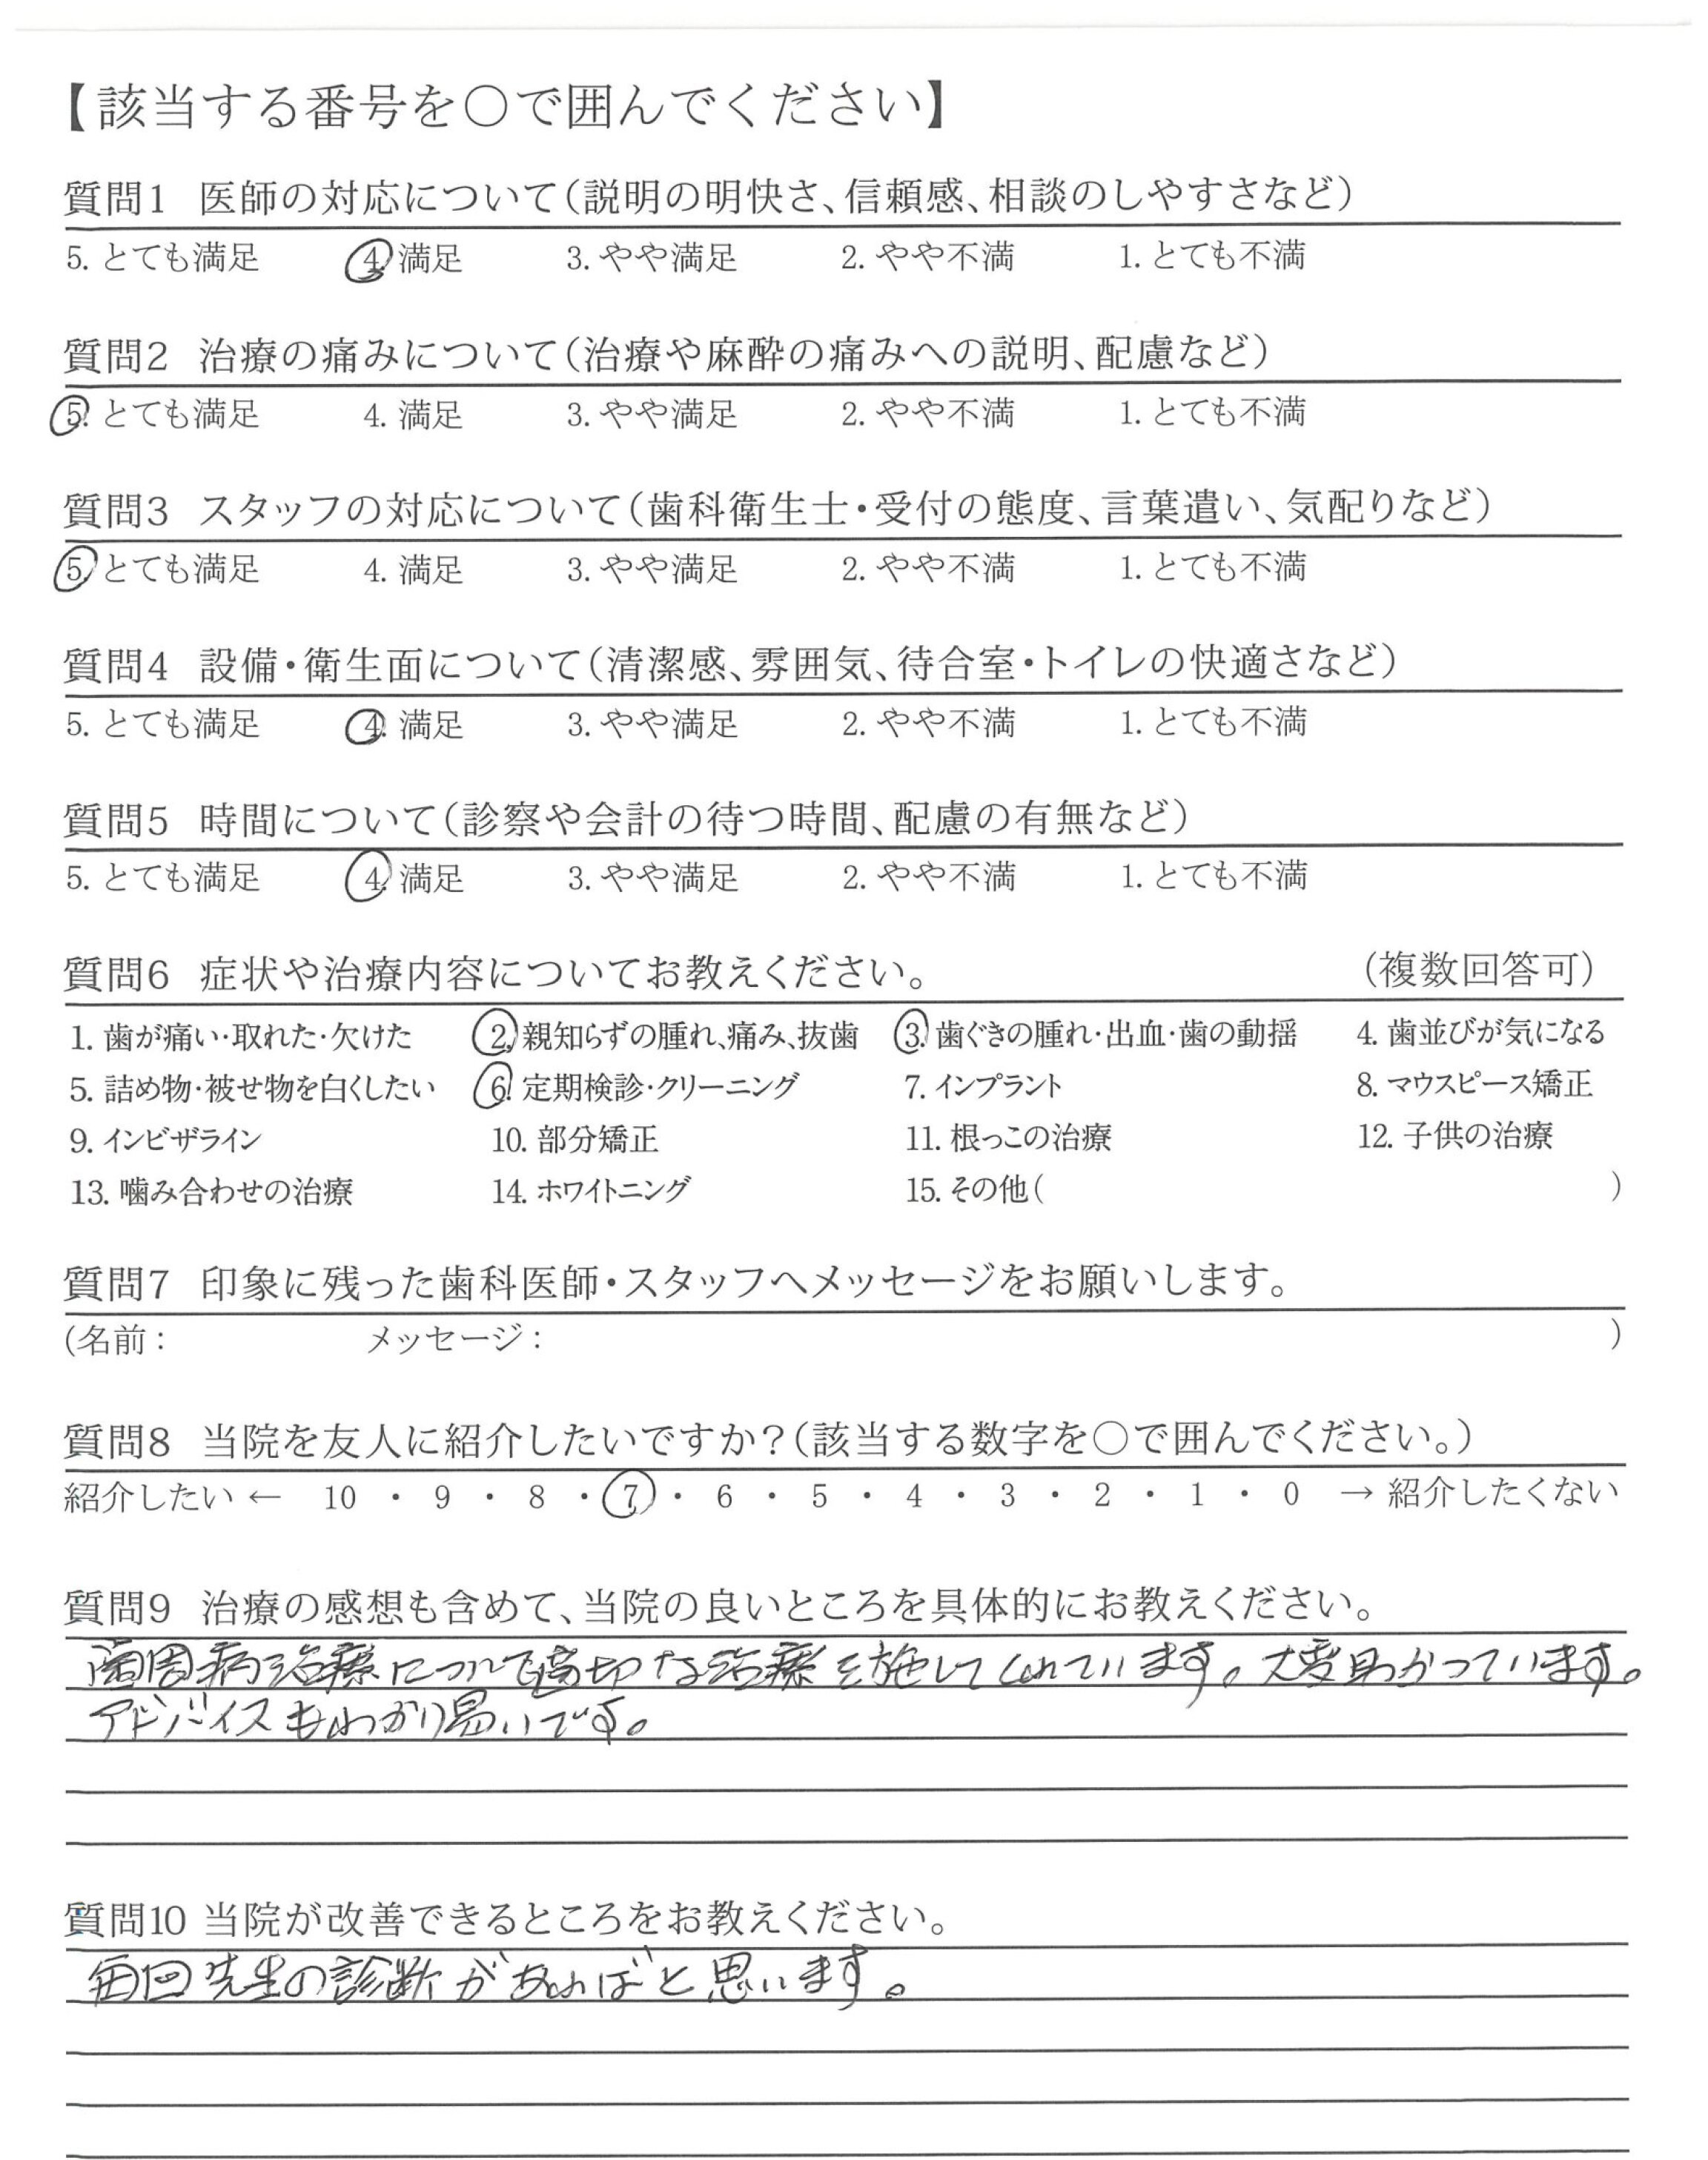 【該当する番号を○で囲んでください】
質問1 医師の対応について(説明の明快さ、信頼感、相談のしやすさなど)
5. とても満足 4. 満足 3. やや満足 2. やや不満 1. とても不満
質問2 治療の痛みについて(治療や麻酔の痛みへの説明、配慮など)
5. とても満足 4. 満足 3. やや満足 2. やや不満 1. とても不満
質問3 スタッフの対応について(歯科衛生士・受付の態度、言葉遣い、気配りなど)
5. とても満足 4. 満足 3. やや満足 2. やや不満 1. とても不満
質問4 設備・衛生面について(清潔感、雰囲気、待合室・トイレの快適さなど)
5. とても満足 4. 満足 3. やや満足 2. やや不満 1. とても不満
質問5 時間について(診察や会計の待つ時間、配慮の有無など)
5. とても満足 4. 満足 3. やや満足 2. やや不満 1. とても不満
質問6 症状や治療内容についてお教えください。 (複数回答可)
1. 歯が痛い・取れた・欠けた 2. 親知らずの腫れ、痛み、抜歯 3. 歯ぐきの腫れ・出血・歯の動揺 4. 歯並びが気になる
5. 詰め物・被せ物を白くしたい 6. 定期検診・クリーニング 7. インプラント 8. マウスピース矯正
9. インビザライン 10. 部分矯正 11. 根っこの治療 12. 子供の治療
13. 噛み合わせの治療 14. ホワイトニング 15. その他( )
質問7 印象に残った歯科医師・スタッフへメッセージをお願いします。
(名前: メッセージ: )
質問8 当院を友人に紹介したいですか?(該当する数字を○で囲んでください。)
紹介したい ← 10 ・ 9 ・ 8 ・ 7 ・ 6 ・ 5 ・ 4 ・ 3 ・ 2 ・ 1 ・ 0 → 紹介したくない
質問9 治療の感想も含めて、当院の良いところを具体的にお教えください。
歯周病治療について適切な治療を施してくれています。大変助かっています。
アドバイスもわかり易いです。
質問10 当院が改善できるところをお教えください。
毎回先生の診断があればと思います。